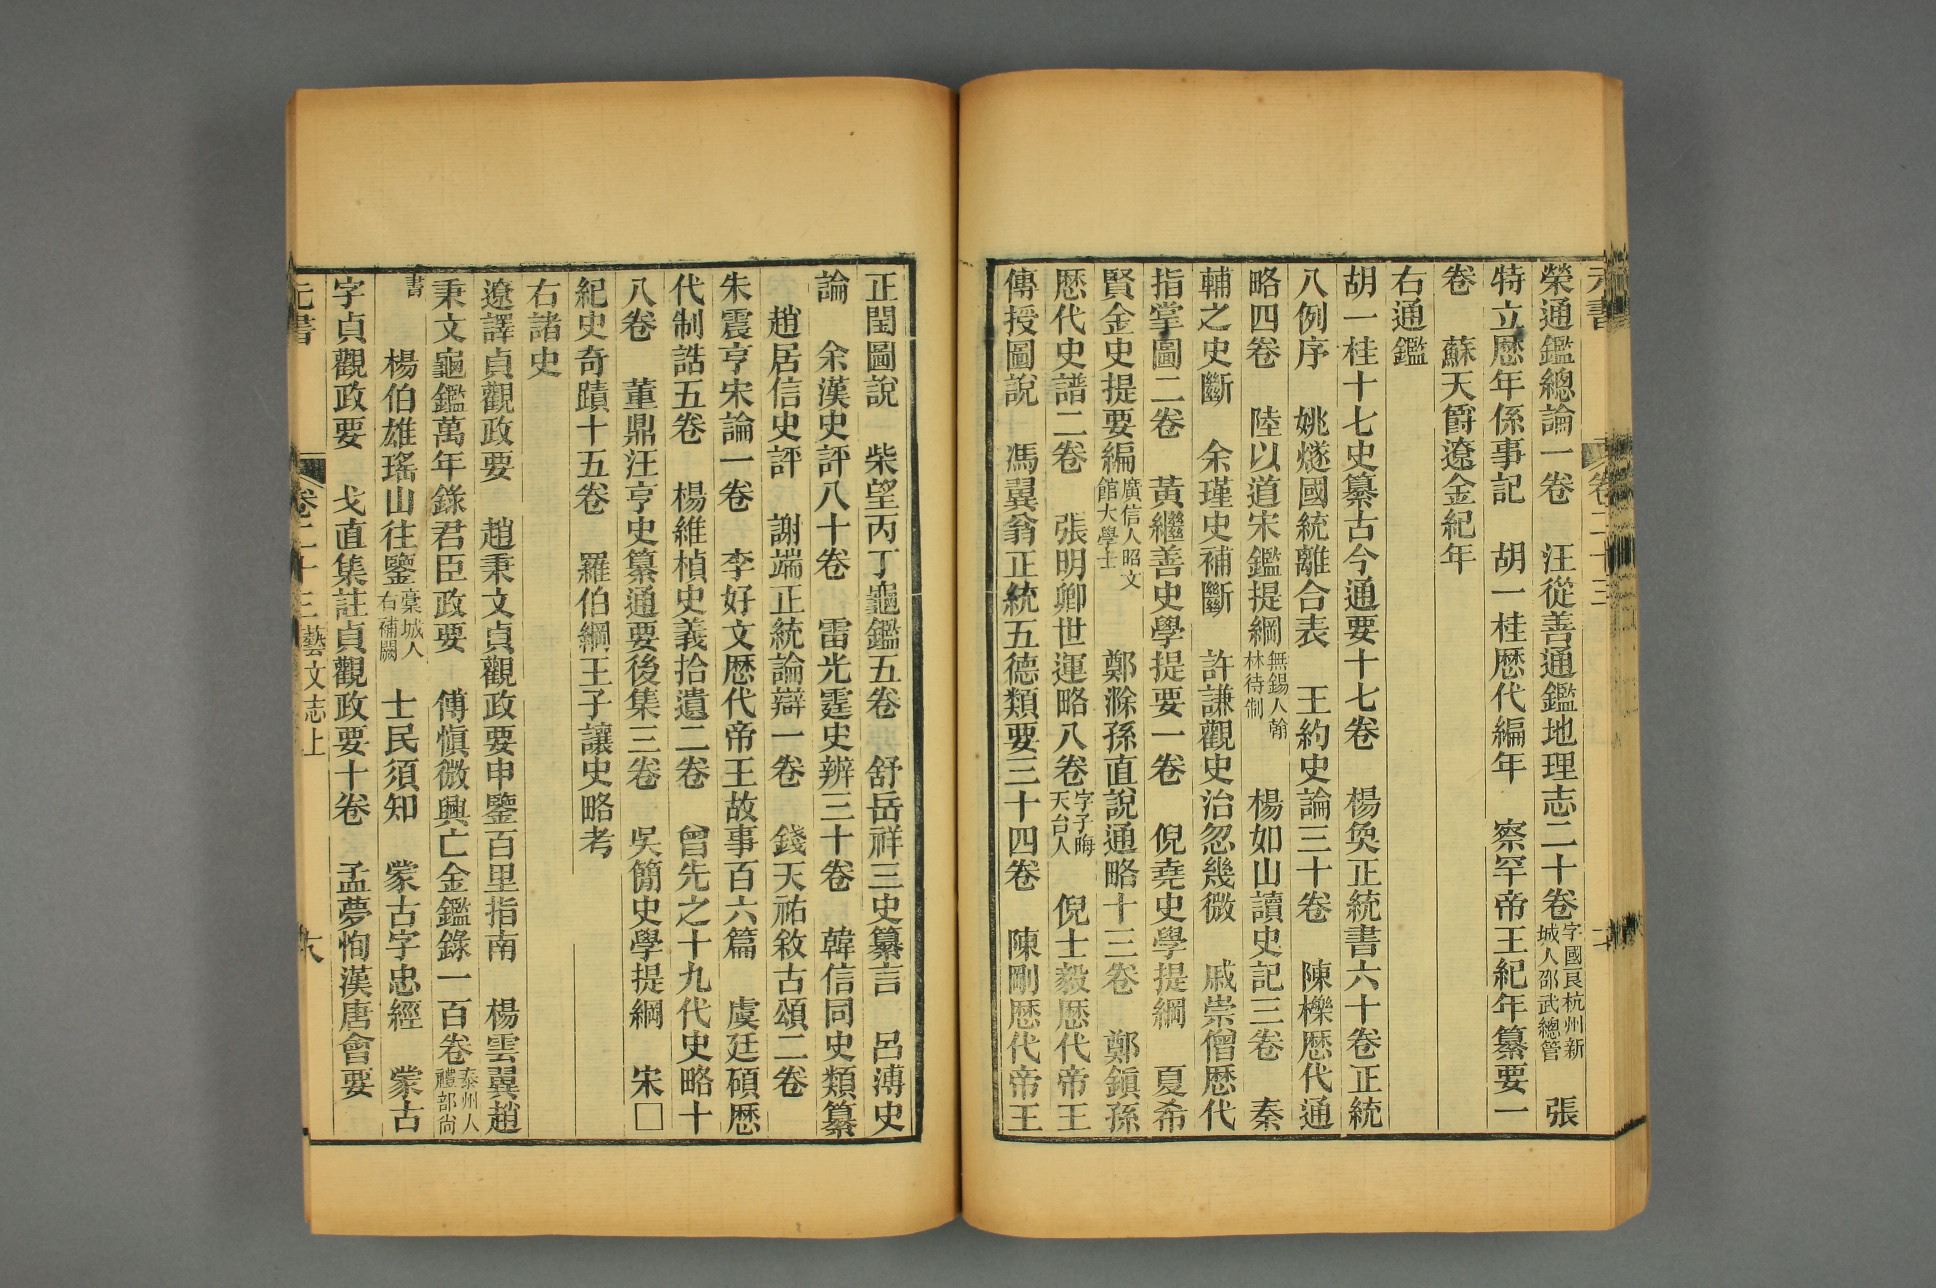 元書 卷二十三
榮通鑑總論一卷　汪從善通鑑地理志二十卷字國良杭州新城人邵武總管　張
特立歷年係事記　胡一桂歷代編年　察罕帝王紀年纂要一
卷　蘇天爵遼金紀年
右通鑑
胡一桂十七史纂古今通要十七卷　楊奐正統書六十卷正統
八例序　姚燧國統離合表　王約史論三十卷　陳櫟歷代通
略四卷　陸以道宋鑑提綱無錫人翰林待制　楊如山讀史記三卷　秦
輔之史斷　余瑾史補斷　許謙觀史治忽幾微　戚崇僧歷代
指掌圖二卷　黃繼善史學提要一卷　倪堯史學提綱　夏希
賢金史提要編廣信人昭文館大學士　鄭滁孫直說通略十三卷　鄭鎮孫
歷代史譜二卷　張明卿世運略八卷字子晦天台人　倪士毅歷代帝王
傳授圖說　馮翼翁正統五德類要三十四卷　陳剛歷代帝王
正閏圖說　柴望丙丁龜鑑五卷　舒岳祥三史纂言　呂溥史
論　余漢史評八十卷　雷光霆史辨三十卷　韓信同史類纂
趙居信史評　謝端正統論辯一卷　錢天祐敘古頌二卷
朱震亨宋論一卷　李好文歷代帝王故事百六篇　虞廷碩歷
代制誥五卷　楊維楨史義拾遺二卷　曾先之十九代史略十
八卷　董鼎汪亨史纂通要後集三卷　吳簡史學提綱　宋□
紀史奇蹟十五卷　羅伯綱王子讓史略考
右諸史
遼譯貞觀政要　趙秉文貞觀政要申鑒百里指南　楊雲翼趙
秉文龜鑑萬年錄君臣政要　傅慎微興亡金鑑錄一百卷泰州人禮部尚
書　楊伯雄瑤山往鑒槀城人右補闕　士民須知　蒙古字忠經　蒙古
字貞觀政要　戈直集註貞觀政要十卷　孟夢恂漢唐會要
元書 卷二十三 藝文志上